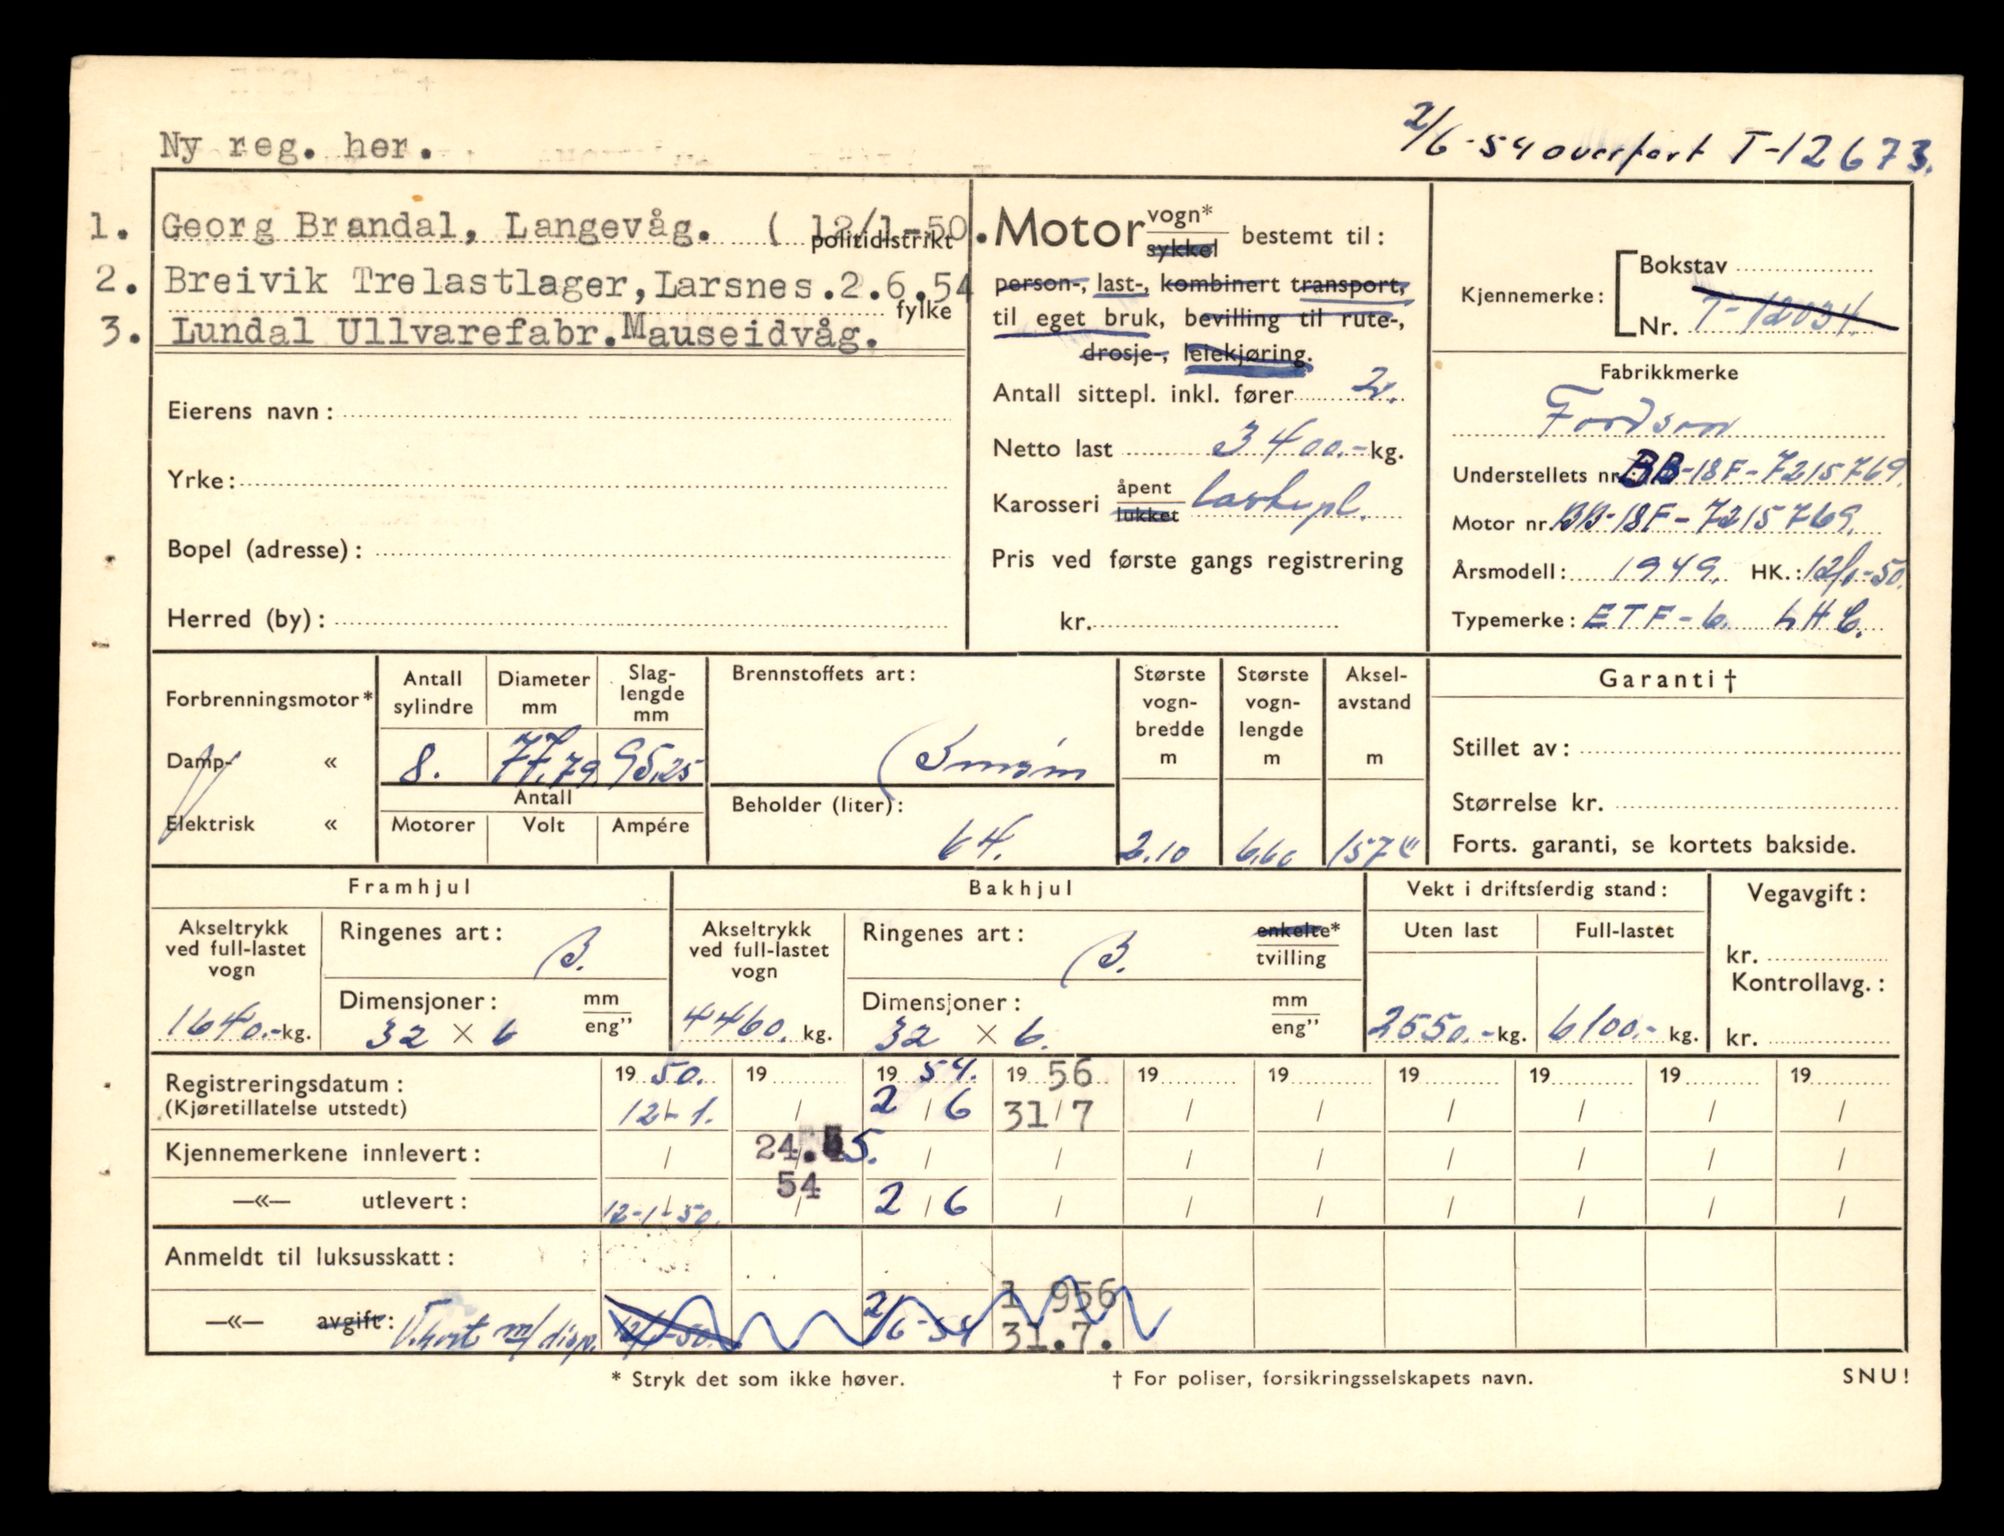 Ny reg. her.
2/6-54 overført T-12673.
1. Georg Brandal, Langevåg. ( 12/1-50.
politidistrikt
2. Breivik Trelastlager, Larsnes. 2.6.54
fylke
3. Lundal Ullvarefabr. Mauseidvåg.
Eierens navn:
Yrke:
Bopel (adresse):
Herred (by):
Motor vogn* sykkel bestemt til:
person-, last-, kombinert transport,
til eget bruk, bevilling til rute-,
drosje-, leiekjøring.
Antall sittepl. inkl. fører 2.
Netto last 3400.- kg.
Karosseri åpent lukket lastepl.
Pris ved første gangs registrering
kr.
Kjennemerke: Bokstav
Nr. T-12034.
Fabrikkmerke
Fordson
Understellets nr. BB-18F-7215769.
Motor nr. BB-18F-7215769.
Årsmodell: 1949. HK.: 12/1-50.
Typemerke: ETF-6. LHC.
Forbrenningsmotor*
Damp- «
Elektrisk «
Antall sylindre
8.
Diameter mm
77.79
Slag-lengde mm
95,25
Antall
Motorer Volt Ampére
Brennstoffets art:
Bensin
Beholder (liter):
64.
Største vogn-bredde m
2.10
Største vogn-lengde m
6.60
Aksel-avstand m
157"
Garanti †
Stillet av:
Størrelse kr.
Forts. garanti, se kortets bakside.
Framhjul
Akseltrykk ved full-lastet vogn
1640.- kg.
Ringenes art: B.
Dimensjoner: mm eng"
32 × 6
Bakhjul
Akseltrykk ved full-lastet vogn
4460. kg.
Ringenes art: B. enkelte* tvilling
Dimensjoner: mm eng"
32 × 6.
Vekt i driftsferdig stand:
Uten last Full-lastet
2550.- kg. 6100.- kg.
Vegavgift:
kr.
Kontrollavg.:
kr.
Registreringsdatum: 19 50. 19 19 54. 19 56 19 19 19 19 19 19
(Kjøretillatelse utstedt) 12-1. / 2/6 31/7 / / / / / /
Kjennemerkene innlevert: / 24.5. / / / / / / / /
54
—«— utlevert: 12-1-50. / 2/6 / / / / / / /
Anmeldt til luksusskatt:
1 956
—«— avgift: V.kort m/disp. 12/1-50. 2/6-54 31.7.
* Stryk det som ikke høver.
† For poliser, forsikringsselskapets navn.
SNU!